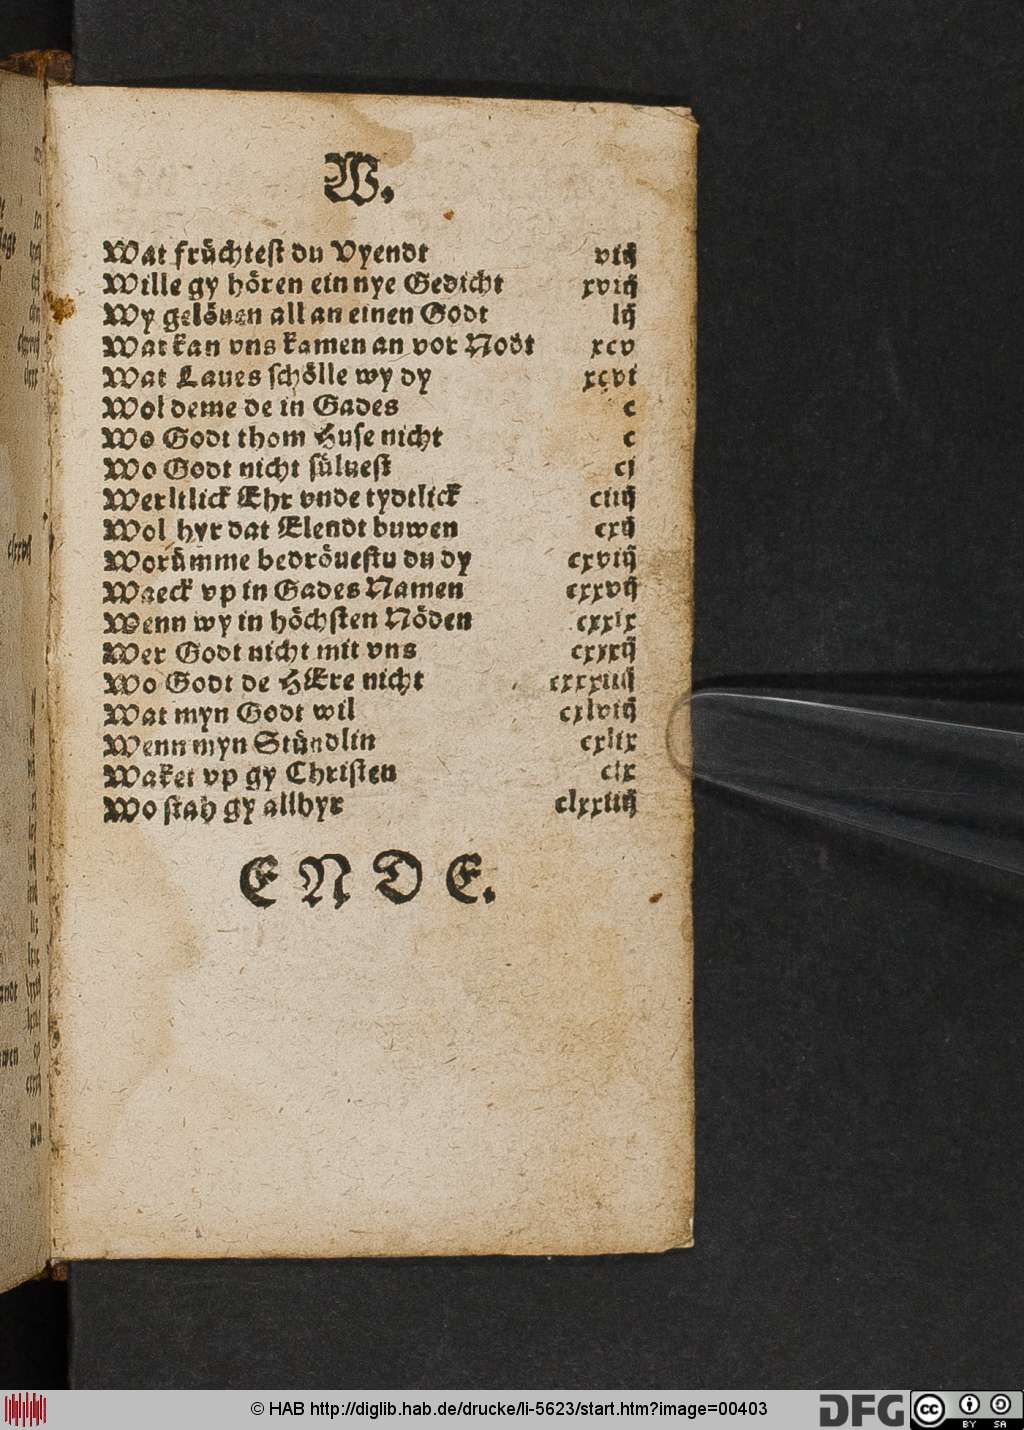 W,
Wat früchtest du Vyendt viij
Wille gy hören ein nye Gedicht xviij
Wy gelöuen all an einen Godt lij
Wat kan vns kamen an vor Nodt xcv
Wat Laues schölle wy dy xcvi
Wol deme de in Gades c
Wo Godt thom Huse nicht c
Wo Godt nicht süluest cj
Werltlick Ehr vnde tydtlick ciiij
Wol hyr dat Elendt buwen cxij
Worümme bedröuestu du dy cxviij
Waeck vp in Gades Namen cxxvij
Wenn wy in höchsten Nöden cxxix
Wer Godt nicht mit vns cxxxij
Wo Godt de HEre nicht cxxxiiij
Wat myn Godt wil cxlviij
Wenn myn Stündlin cxlix
Waket vp gy Christen clx
Wo stah gy allhyr clxxiiij
E N D E.
© HAB http://diglib.hab.de/drucke/li-5623/start.htm?image=00403
DFG
cc BY SA